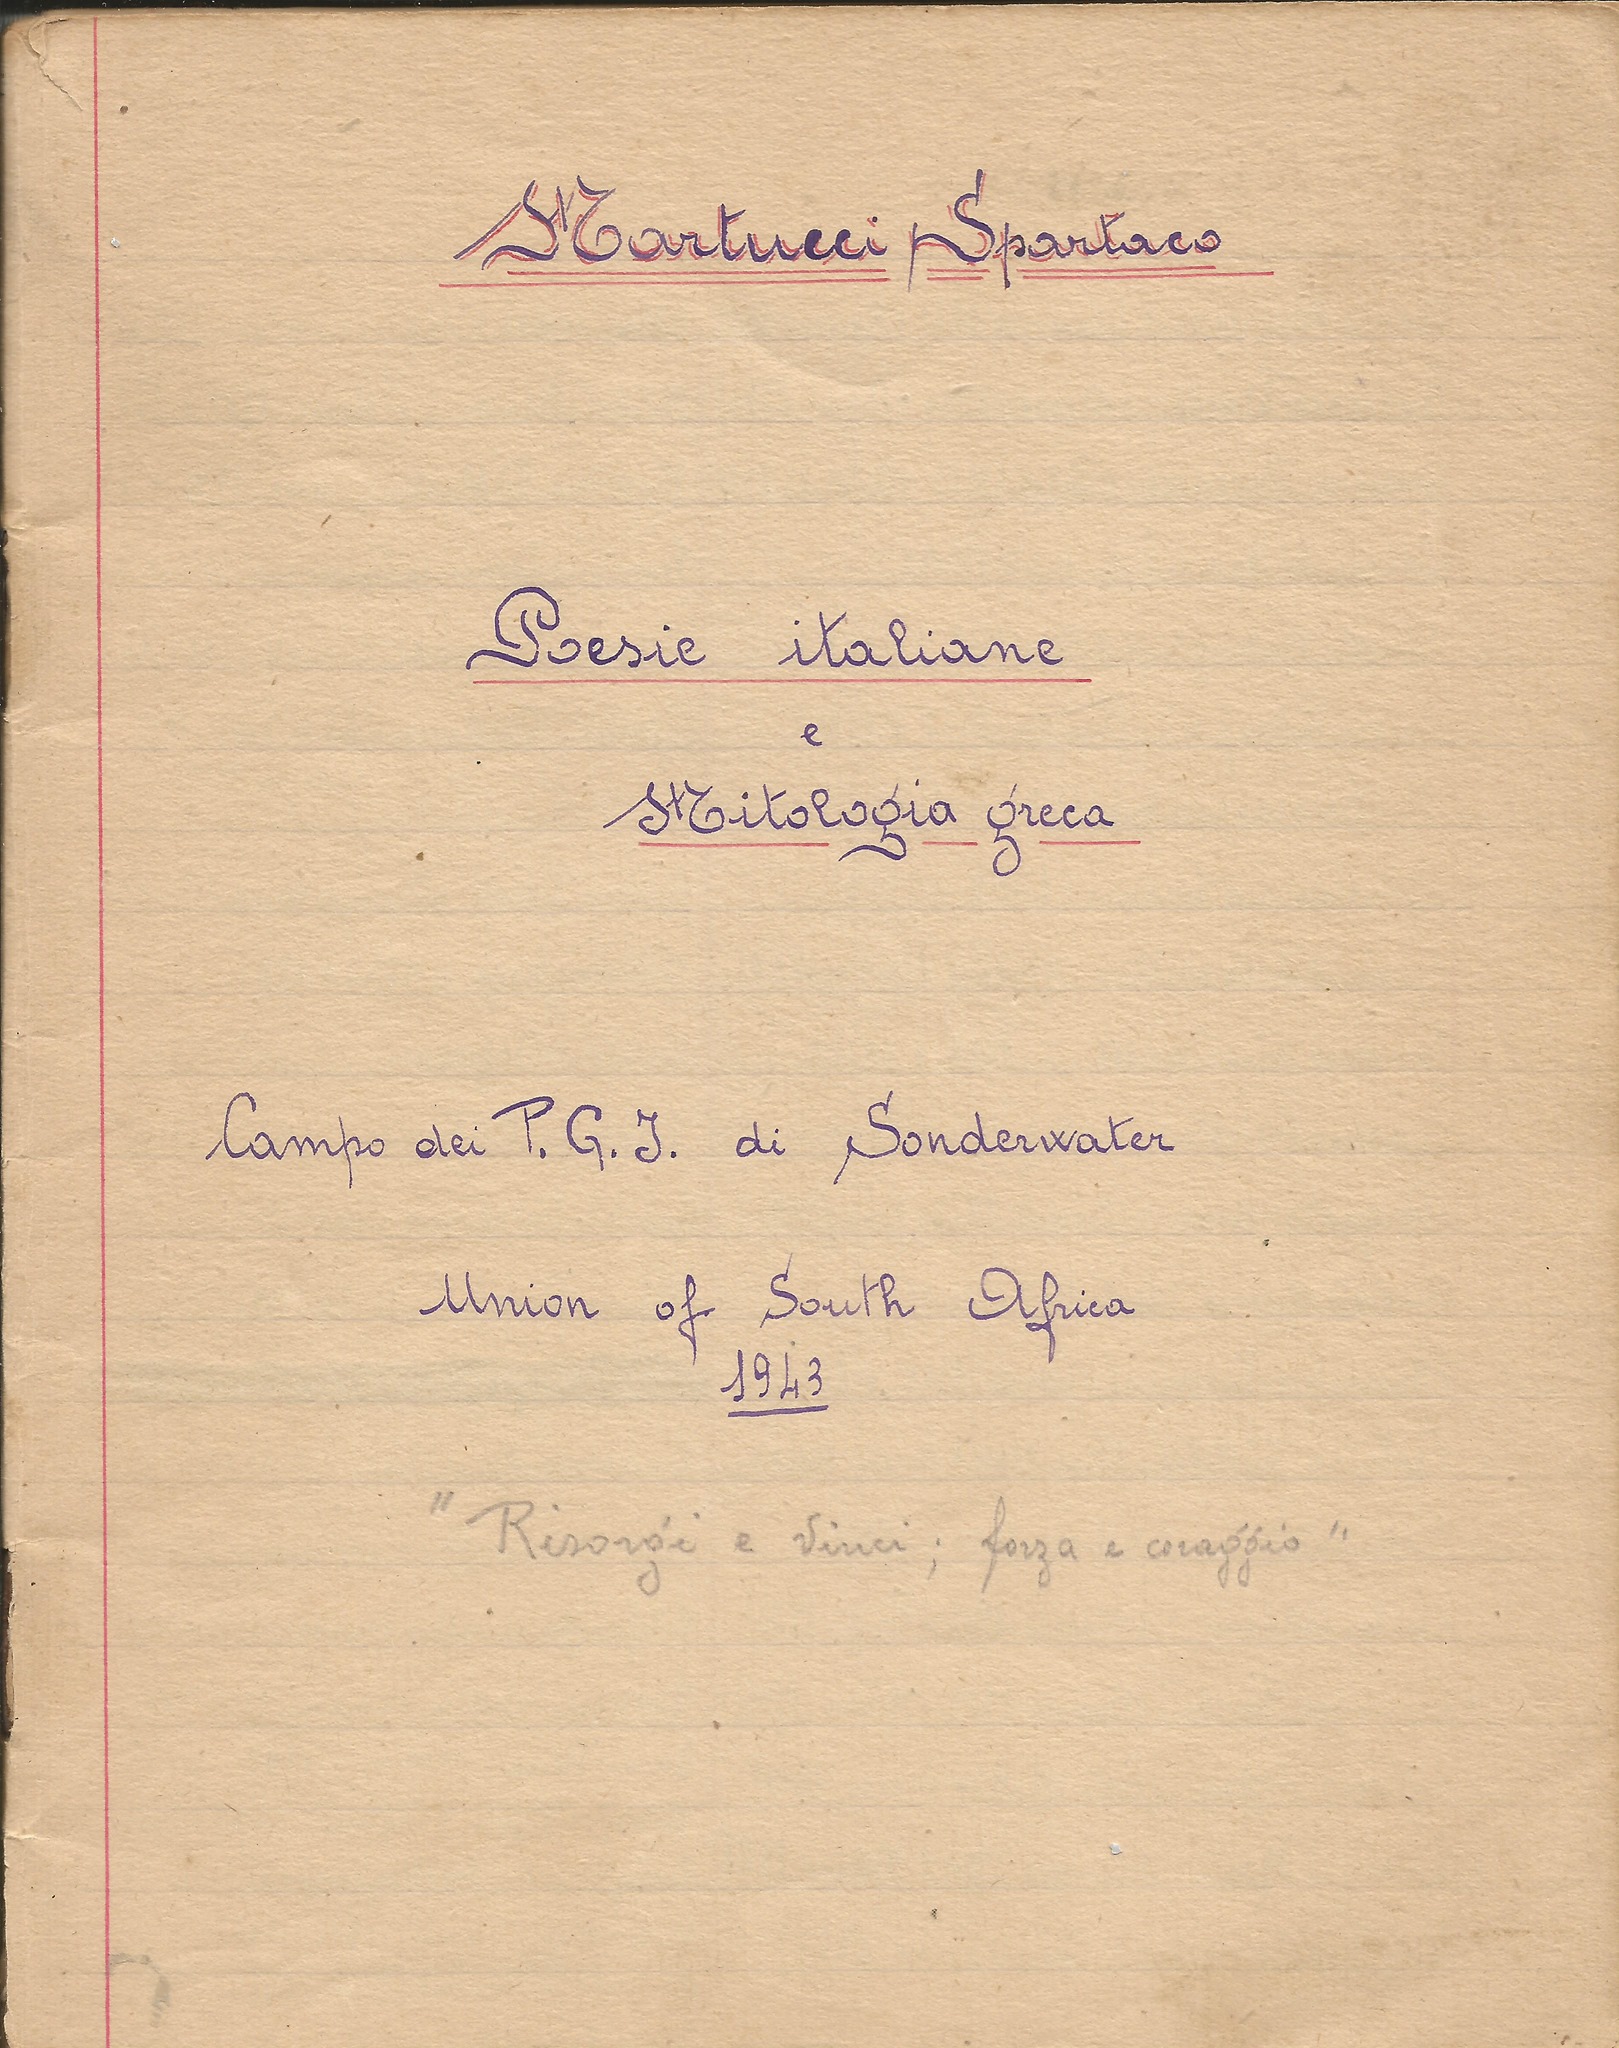 Martucci Spartaco
Poesie italiane
e
Mitologia greca
Campo dei P. G. I. di Sonderwater
Union of South Africa
1943
"Risorgi e vinci; forza e coraggio"